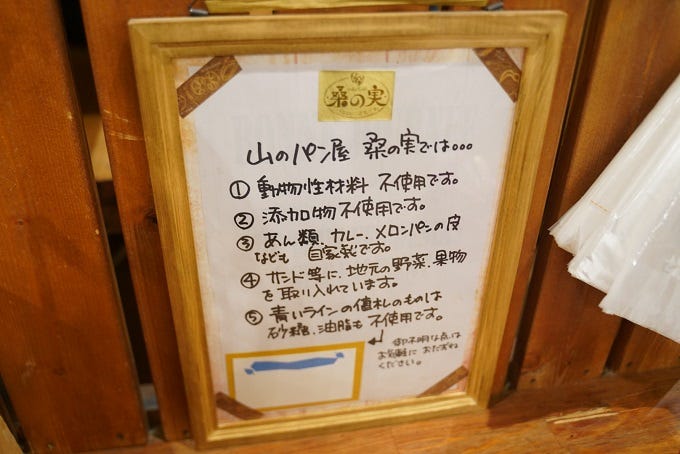 桑の実
山のパン屋 桑の実では...
① 動物性材料 不使用です。
② 添加物不使用です。
③ あん類、カレー、メロンパンの皮
なども 自家製です。
④ サンド等に、地元の野菜、果物
を取り入れています。
⑤ 青いラインの値札のものは
砂糖、油脂も 不使用です。
御不明な点は
お気軽に おたずね
ください。